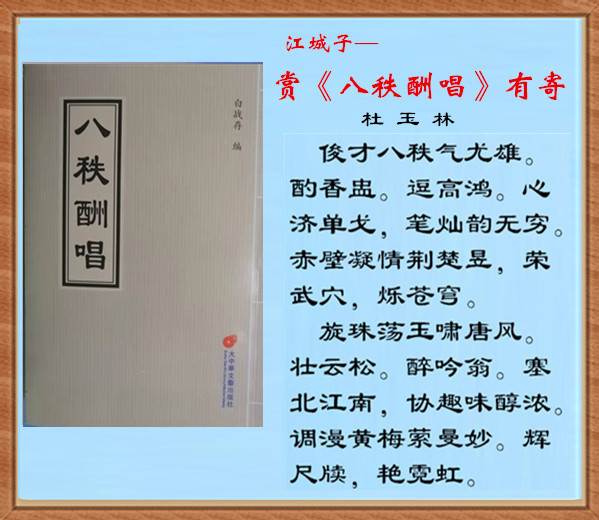 江城子—
赏《八秩酬唱》有寄
杜玉林
俊才八秩气尤雄。
酌香盅。逗高鸿。心
济单戈，笔灿韵无穷。
赤壁凝情荆楚昱，荣
武穴，烁苍穹。
旋珠荡玉啸唐风。
壮云松。醉吟翁。塞
北江南，协趣味醇浓。
调漫黄梅萦曼妙。辉
尺牍，艳霓虹。
白战存 编
八秩酬唱
大中华文艺出版社